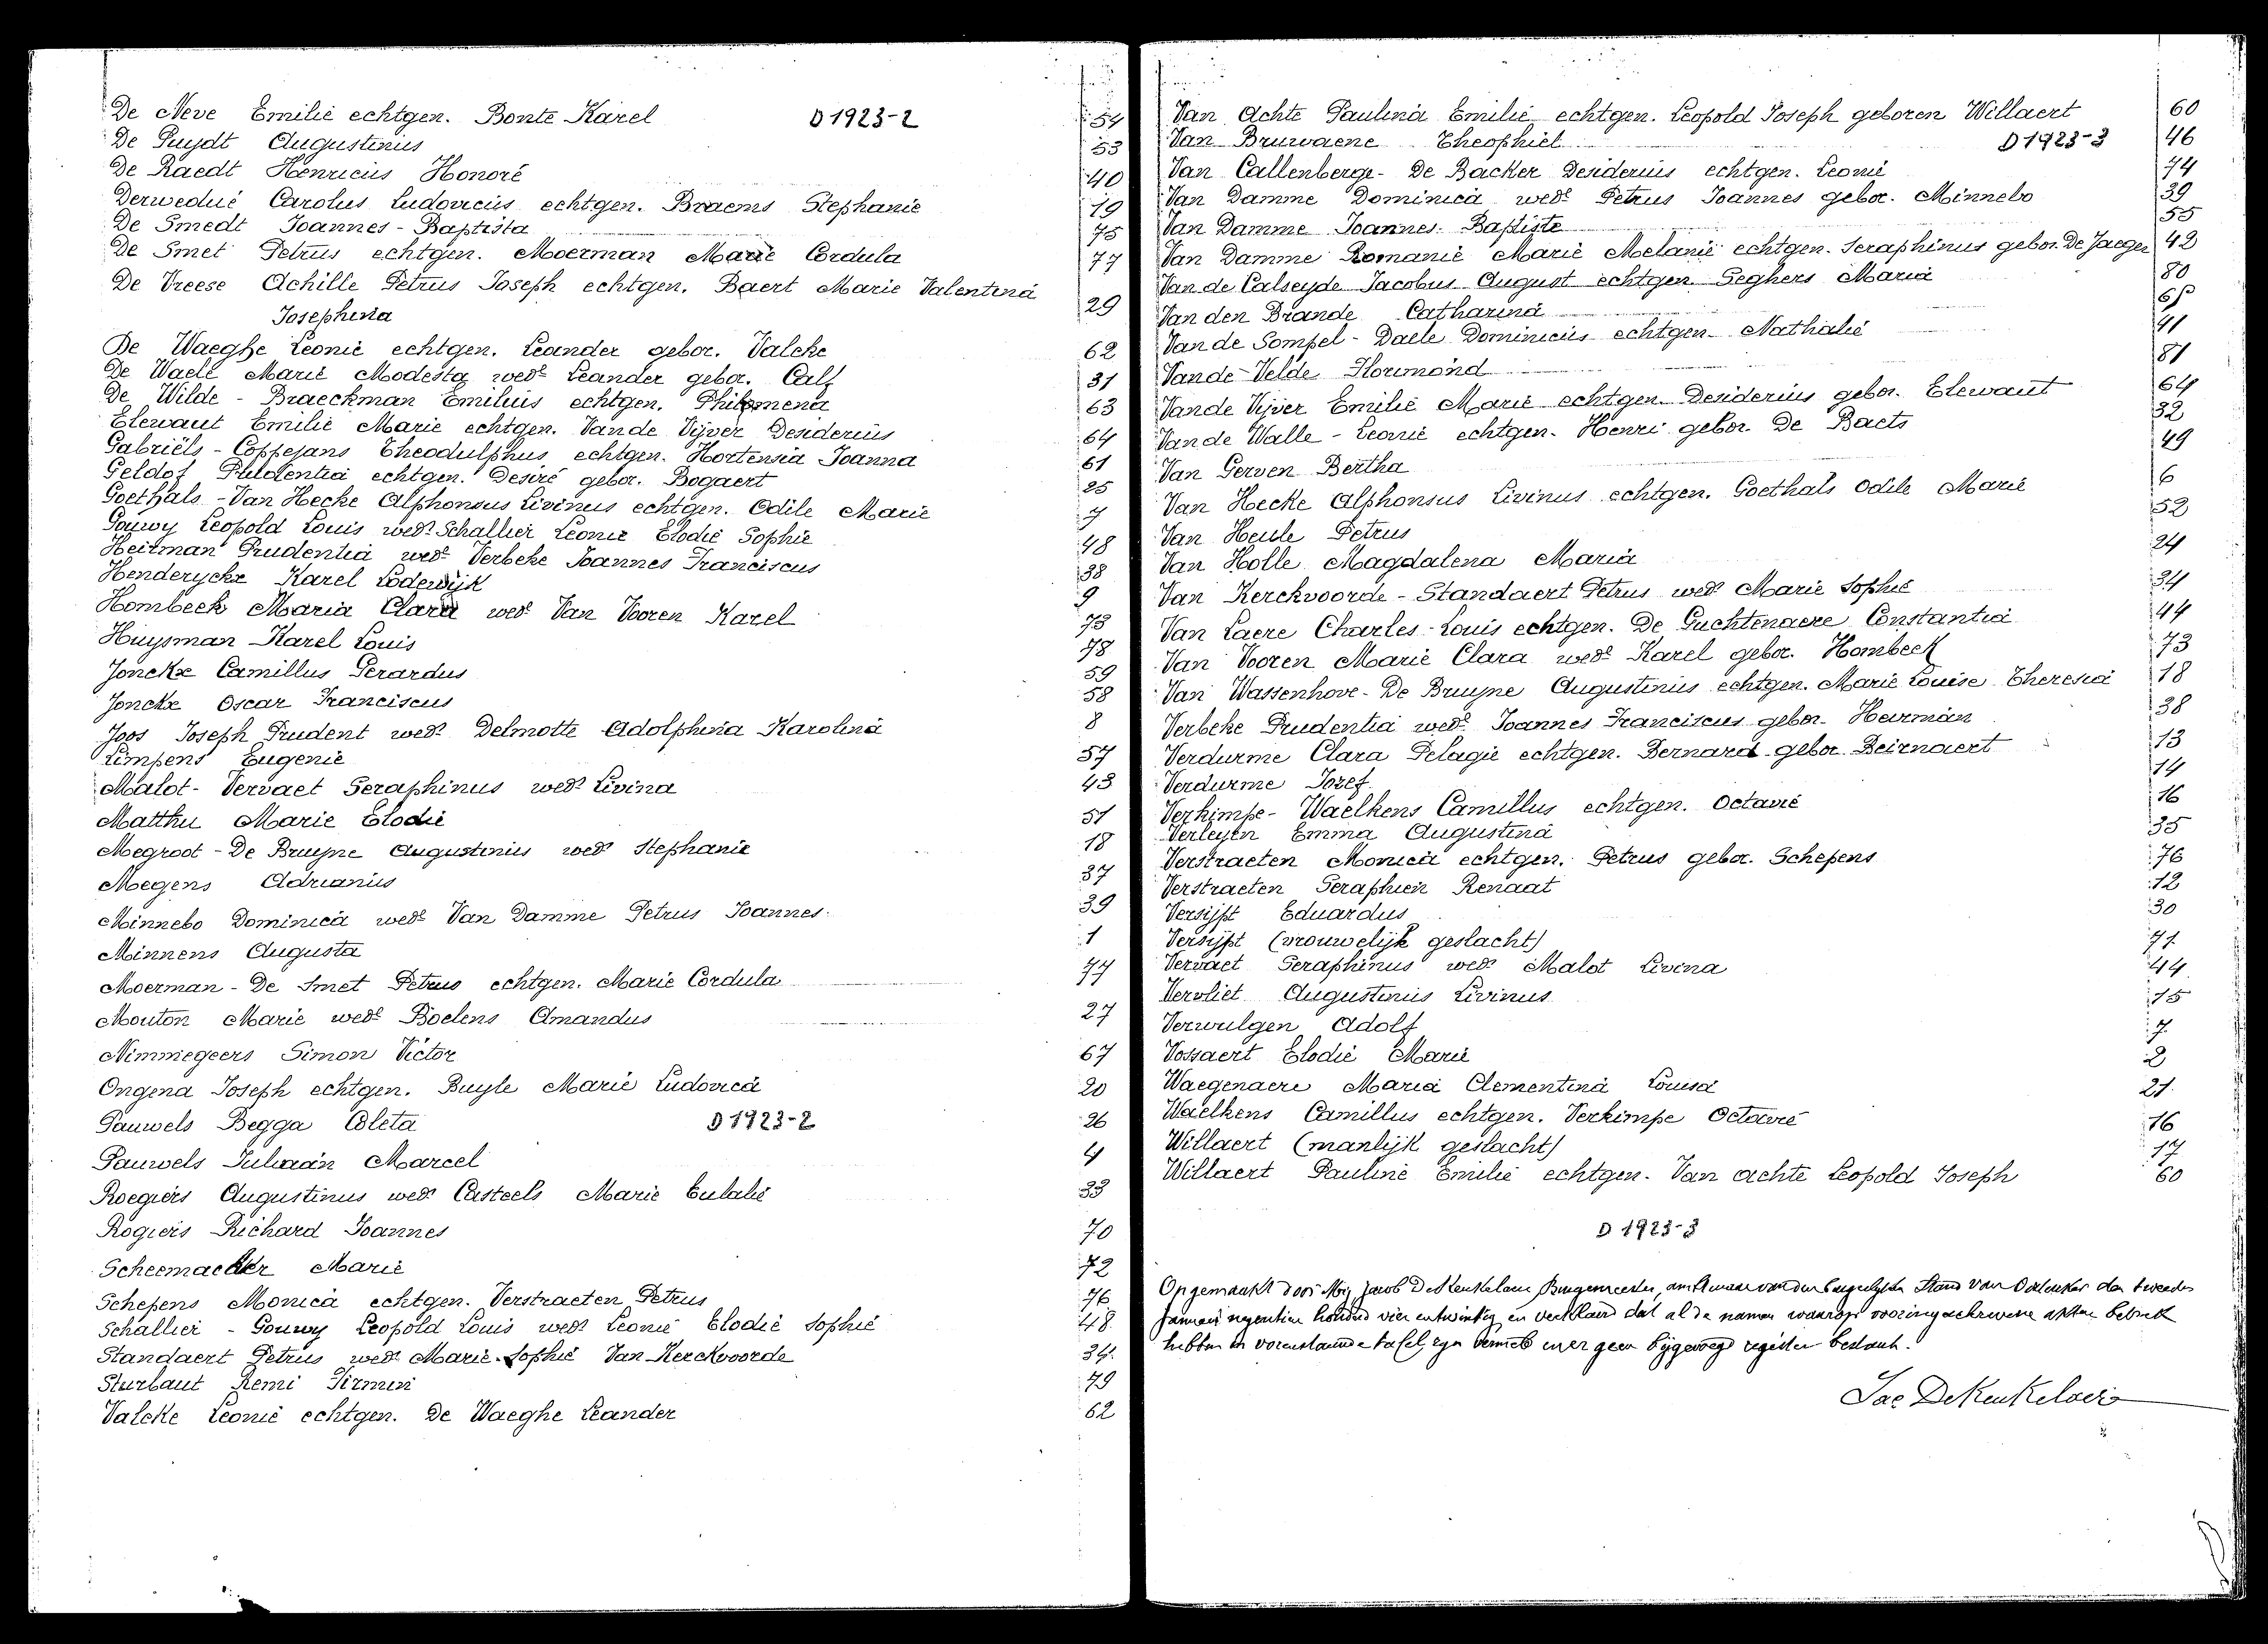 De Neve Emilie echtgen. Bonte Karel D 1923-2 54
De Puydt Augustinus 53
De Raedt Henricus Honoré 40
Derweduë Carolus Ludovicus echtgen. Braems Stephanie 19
De Smedt Joannes-Baptista 75
De Smet Petrus echtgen. Moerman Marie Cordula 77
De Vreese Achille Petrus Joseph echtgen. Baert Marie Valentina
Josephina 29
De Waeghe Leonie echtgen. Leander gebor. Valcke 62
De Waele Marie Modesta wedr Leander gebor. Calf 31
De Wilde - Braeckman Emilius echtgen. Philomena 63
Elewaut Emilie Marie echtgen. Van de Vijver Desiderius 64
Gabriëls - Coppejans Theodulphus echtgen. Hortensia Joanna 61
Geldof Prudentia echtgen. Desiré gebor. Bogaert 25
Goethals - Van Hecke Alphonsus Livinus echtgen. Odile Marie 7
Gouwy Leopold Louis wedr Schallier Leonie Elodie Sophie 48
Heirman Prudentia wedr Verbeke Joannes Franciscus 38
Henderyckx Karel Lodewijk 9
Hombeek Maria Clara wedr Van Vooren Karel 73
Huysman Karel Louis 78
Jonckx Camillus Gerardus 59
Jonckx Oscar Franciscus 58
Joos Joseph Prudent wedr Delmotte Adolphina Karolina 8
Limpens Eugenie 57
Malot - Vervaet Seraphinus wedr Livina 43
Matthu Marie Elodie 51
Megroot - De Bruyne Augustinus wedr Stephanie 18
Moegens Adrianus 37
Minnebo Dominica wedr Van Damme Petrus Joannes 39
Minnens Augusta 1
Moerman - De Smet Petrus echtgen. Marie Cordula 77
Mouton Marie wedr Boelens Amandus 27
Nimmegeers Simon Victor 67
Ongena Joseph echtgen. Buyle Marie Ludovica 20
Pauwels Begga Coleta D 1923-2 26
Pauwels Juliaan Marcel 4
Roegiers Augustinus wedr Casteels Marie Eulalie 33
Rogiers Richard Joannes 70
Scheemaecker Marie 72
Schepens Monica echtgen. Verstraeten Petrus 76
Schallier - Gouwy Leopold Louis wedr Leonie Elodie Sophie 48
Standaert Petrus wedr Marie Sophie Van Kerckvoorde 34
Sturbaut Remi Firmin 79
Valcke Leonie echtgen. De Waeghe Leander 62
Van Achte Paulina Emilie echtgen. Leopold Joseph geboren Willaert 60
Van Bruwaene Theophiel D 1923-3 46
Van Callenberge - De Backer Desiderius echtgen. Leonie 74
Van Damme Dominica wedr Petrus Joannes gebor. Minnebo 39
Van Damme Joannes Baptiste 55
Van Damme Romanie Marie Melanie echtgen. Seraphinus gebor. De Jaeger 42
Van de Calseyde Jacobus August echtgen. Seghers Maria 80
Van den Brande Catharina 65
Van de Sompel - Daele Dominicus echtgen. Nathalie 41
Van de Velde Florimond 81
Van de Vijver Emilie Marie echtgen. Desiderius gebor. Elewaut 64
Van de Walle - Leonie echtgen. Henri gebor. De Baets 32
Van Gerven Bertha 49
Van Hecke Alphonsus Livinus echtgen. Goethals Odile Marie 6
Van Heule Petrus 52
Van Holle Magdalena Maria 24
Van Kerckvoorde - Standaert Petrus wedr Marie Sophie 34
Van Laere Charles-Louis echtgen. De Guchtenaere Constantia 44
Van Vooren Marie Clara wedr Karel gebor. Hombeek 73
Van Wassenhove - De Bruyne Augustinus echtgen. Marie Louise Theresia 18
Verbeke Prudentia wedr Joannes Franciscus gebor. Heirman 38
Verdurme Clara Pelagie echtgen. Bernard gebor. Beirnaert 13
Verdurme Jozef 14
Verkimpe - Waelkens Camillus echtgen. Octavie 16
Verleyen Emma Augustina 35
Verstraeten Monica echtgen. Petrus gebor. Schepens 76
Verstraeten Seraphien Renaat 12
Versijpt Eduardus 30
Versijpt (vrouwelijk geslacht) 71
Vervaet Seraphinus wedr Malot Livina 44
Vervliet Augustinus Livinus 15
Verwulgen Adolf 7
Vossaert Elodie Marie 2
Waegenaere Maria Clementina Louisa 21
Waelkens Camillus echtgen. Verkimpe Octavie 16
Willaert (manlijk geslacht) 17
Willaert Pauline Emilie echtgen. Van Achte Leopold Joseph 60
D 1923-3
Opgemaakt door Mij Jacob De Keukelaere Burgemeester, ambtenaar van den Burgelijken Stand van den tweeden
Januari negentien honderd vier en twintig en verklaard dat al de namen waarop vooringeschrevene akten betrek
hebben in voorenstaande tafel zijn vermeld en er geen bijgevoegd register bestaat.
Jac De Keukelaere